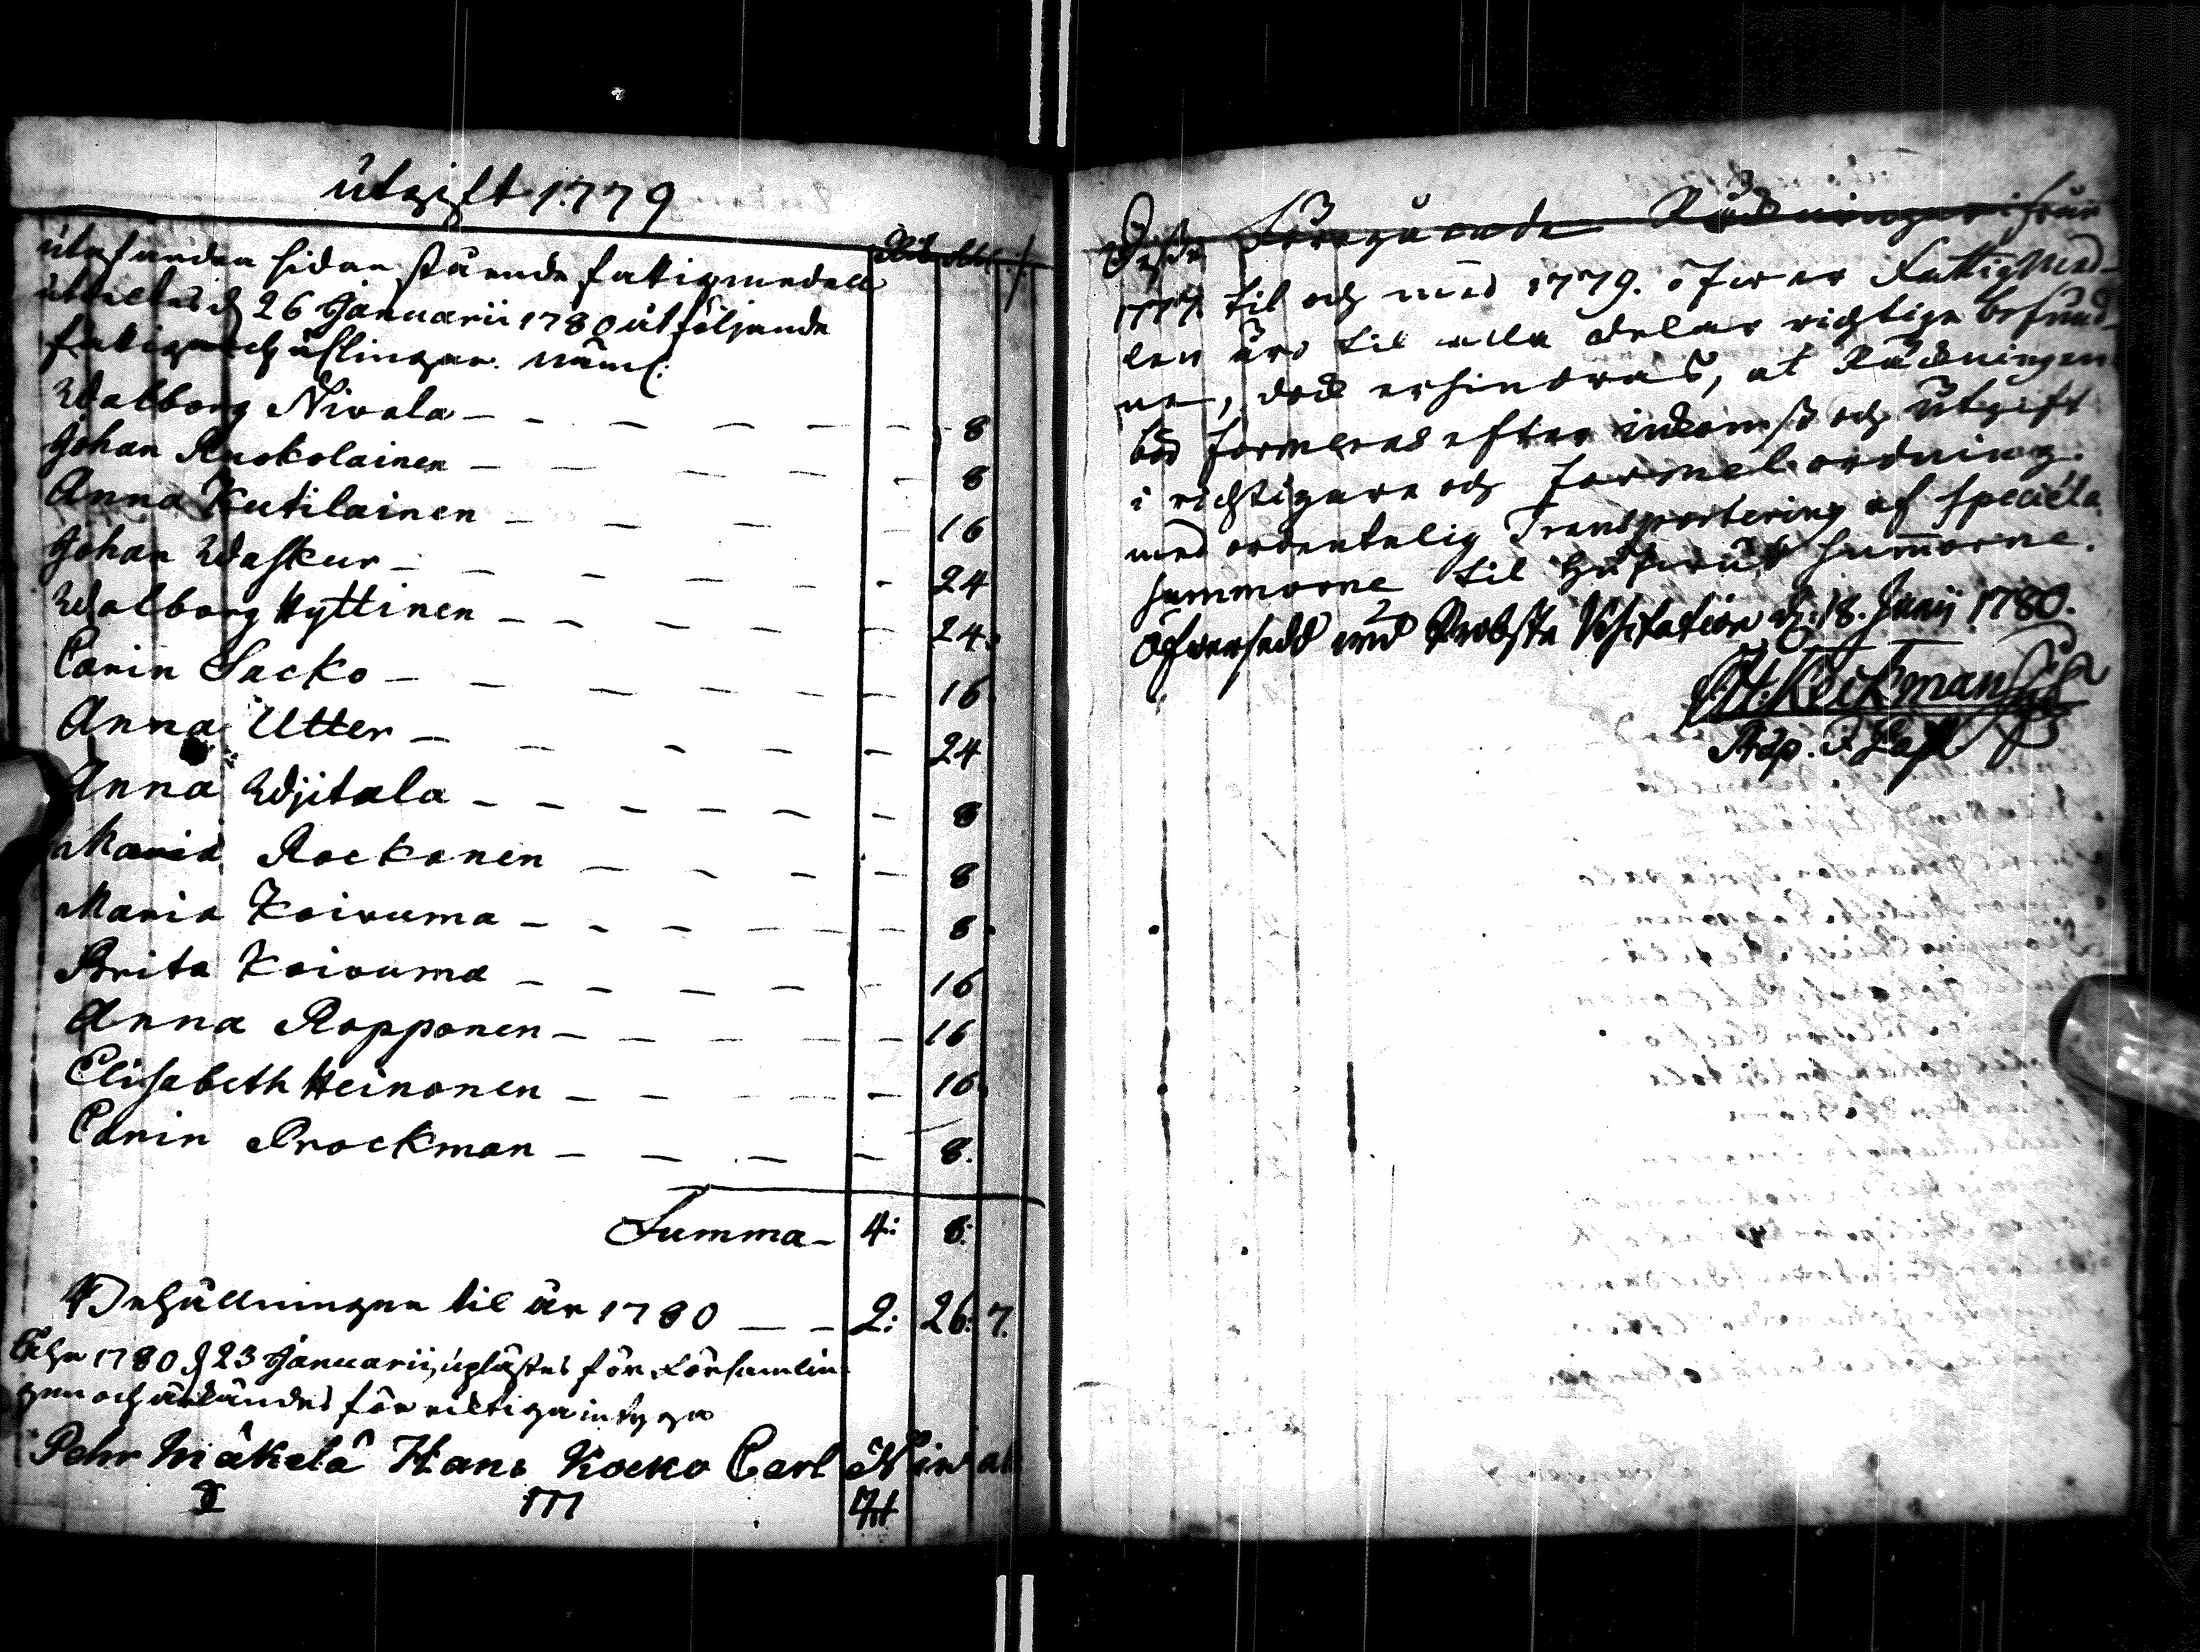 utgift 1779
uta andra sidan stående fattigmedell
utdeltes d 26 Januarii 1780 åt följande
fatiga och usslingar. näml:
Walborg Niwala - - - - - - 8
Johan Ruokolainen - - - - - 8
Anna Kutilainen - - - - 16
Johan Waskur - - - - - - 24
Walborg Hyttinen - - - - - 24:
Carin Sacko - - - - - - 16
Anna Utter - - - - - 24
Anna Wjitala - - - - - - 8
Maria Rockonen - - - - - 8
Maria Koivuma - - - - - - 8
Brita Koivuma - - - - - 16
Anna Ropponen - - - - - 16
Elisabeth Heinonen - - - - 16
Carin Brockman - - - - 8.
Summa - 4: 8:
Behållningen til år 1780 - - 2: 26: 7.
Åhr 1780 d 23 Januarii, uplästes för Församlin-
gen och ärkändes för riktiga intyga
Pehr Mäkelä Hans Kocko Carl Niwala
Desse föregående Räkningar ifrån
til och med 1779. öfwer Fattig Med-
len äro til alla delar richtige befund-
ne, dock erhindras, at Räkningen
bör formeras efter inkomst och Utgift
i richtigare och formel ordning.
med ordentelig Transportering af speciela
summorne til hufwud summorne.
Öfwersedd wid Probsts Visitation d: 18. Junij 1780.
H. Keckman